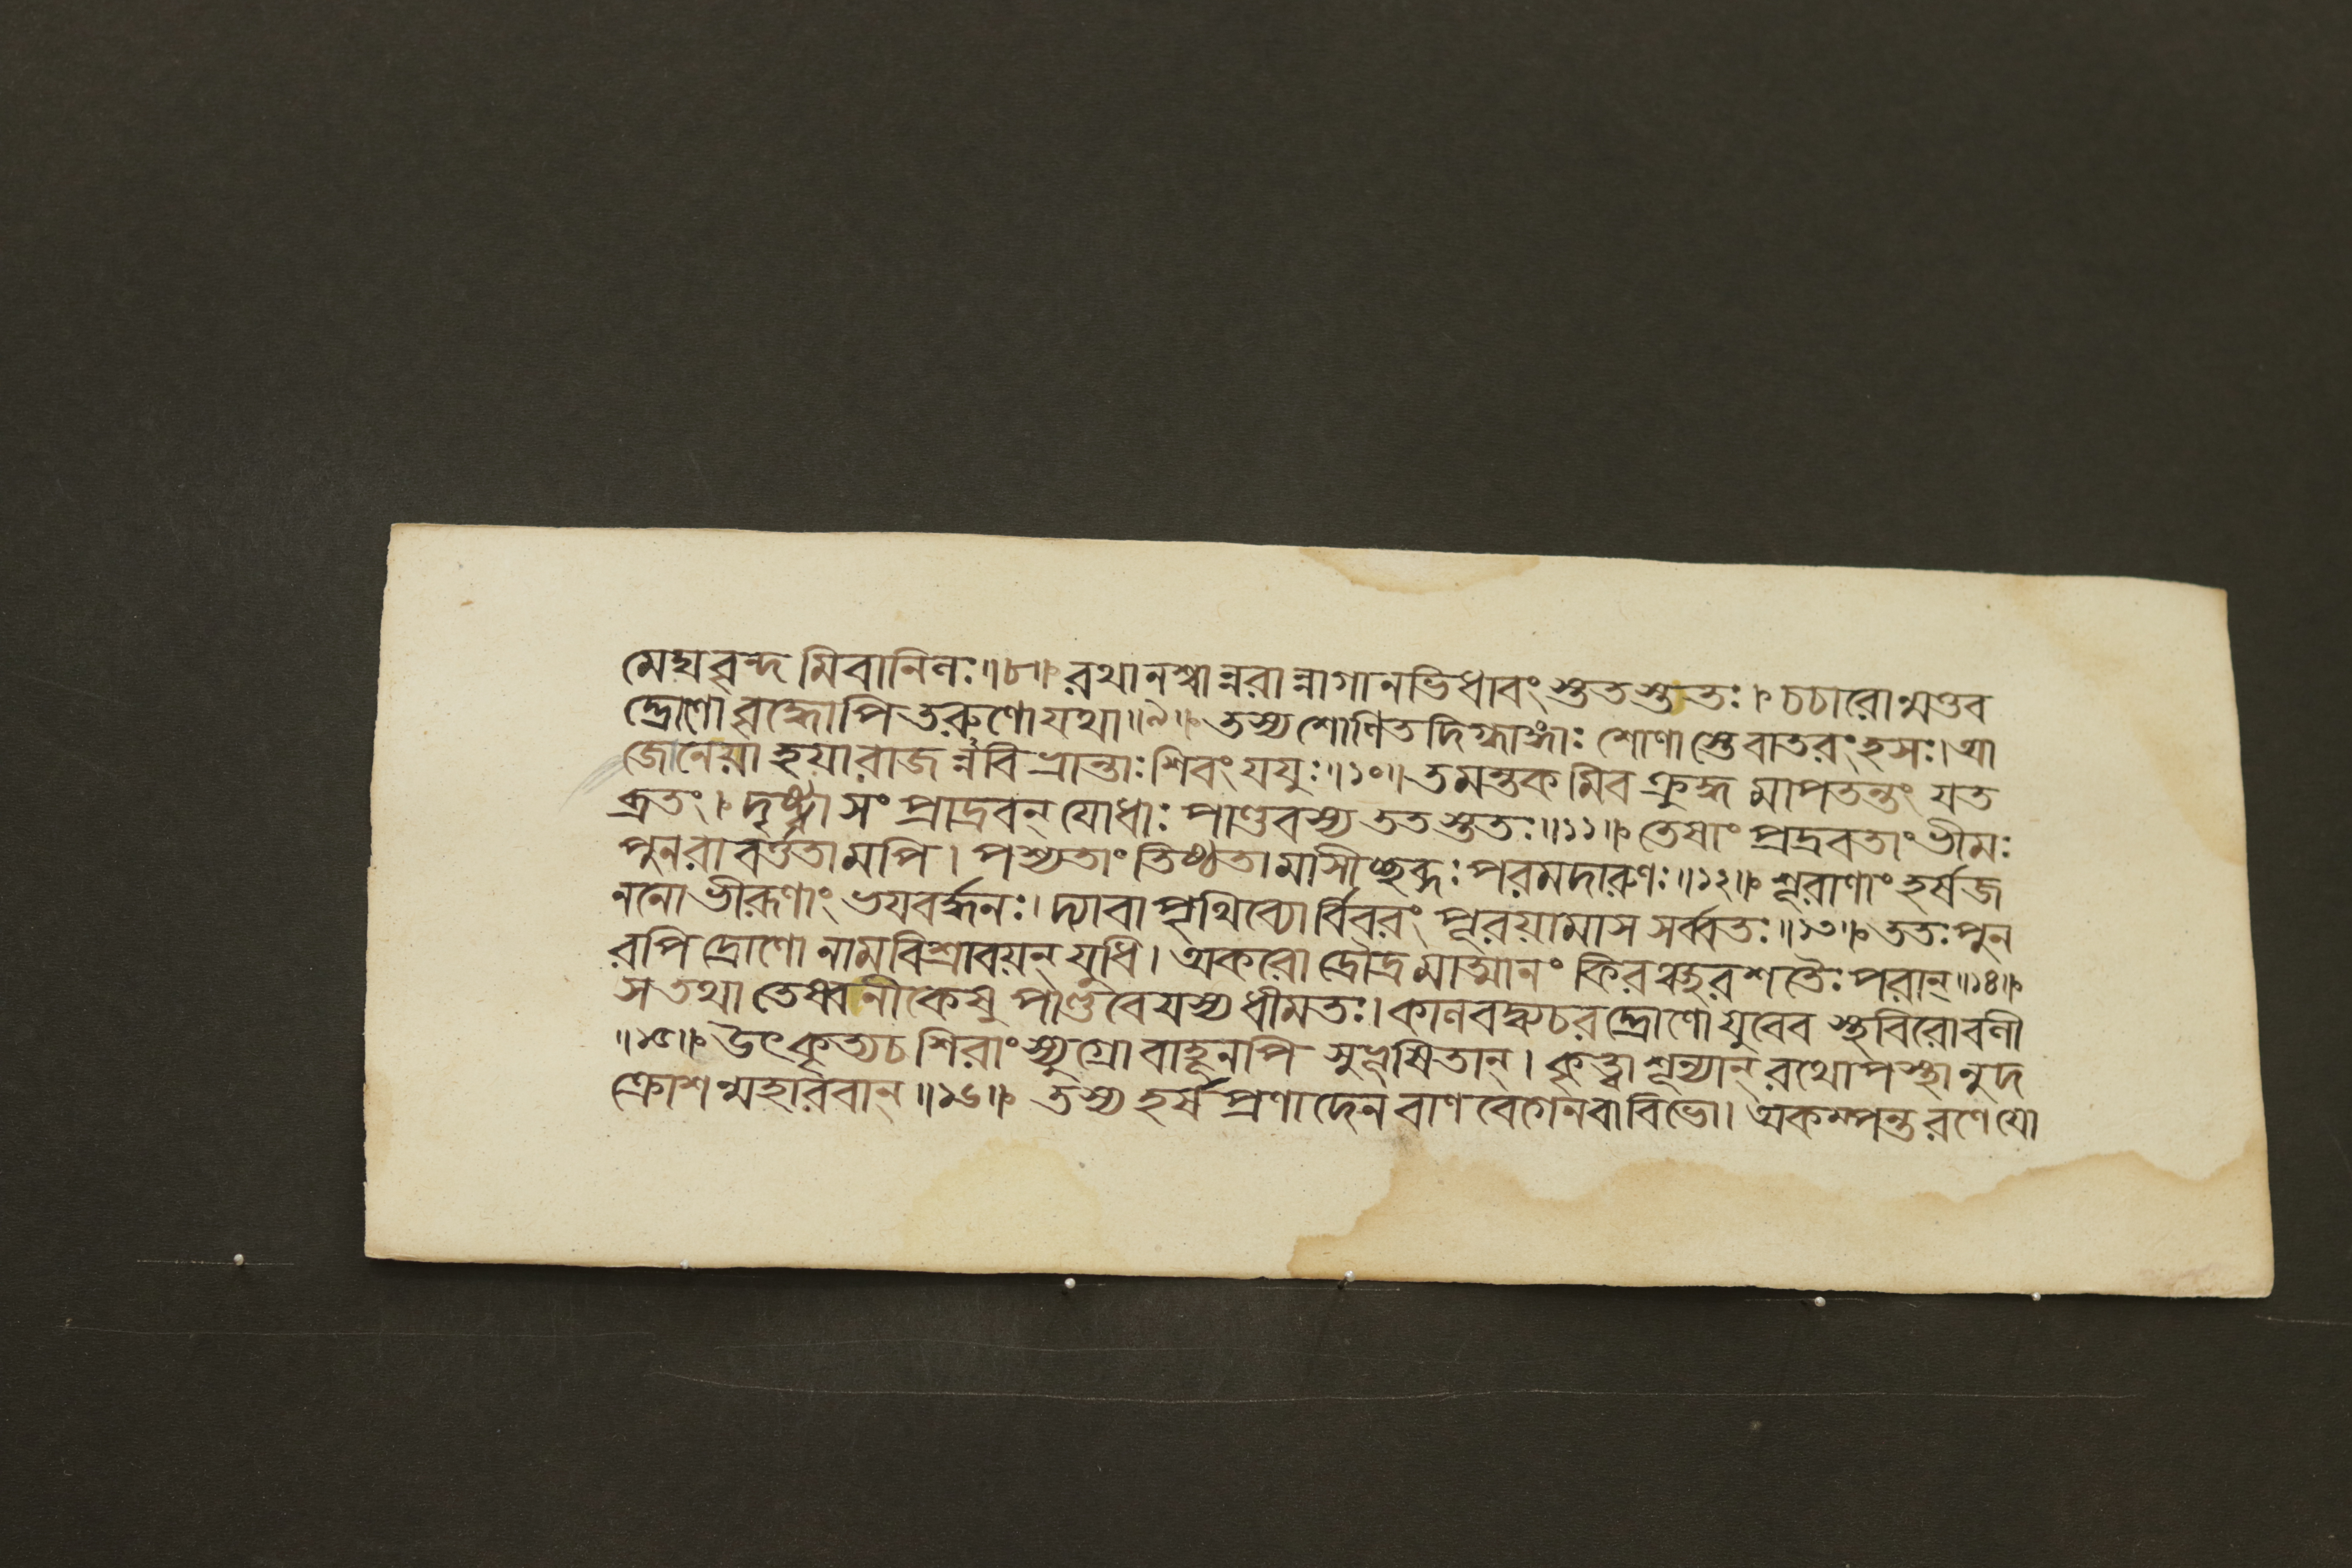 মেঘবৃন্দমিবানিলঃ॥৮॥ রথানশ্বান্নরান্নাগানভিধাবংস্তুতস্তুতঃ। চচারোন্মত্তব
দ্দ্রোণো বৃদ্ধোপি তরুণো যথা॥৯॥ তস্য শোণিতদিগ্ধাঙ্গাঃ শোণাস্তে বাতরংহসঃ। আ
জানেয়া হয়া রাজন্নবিভ্রান্তাঃ শিবং যযুঃ॥১০॥ তমন্তকমিব ক্রুদ্ধমাপতন্তং যত
ব্রতং। দৃষ্ট্বা সংপ্রাদ্রবন্ যোধাঃ পাণ্ডবস্য ততস্তুতঃ॥১১॥ তেষাং প্রদ্রবতাং ভীমঃ
পুনরাবর্ত্ততামপি। পশ্যতাং তিষ্ঠতামাসীচ্ছব্দঃ পরমদারুণঃ॥১২॥ শূরাণাং হর্ষজ
ননো ভীরূণাং ভয়বর্দ্ধনঃ। দ্যাবাপৃথিব্যোর্বিবরং পূরয়ামাস সর্ব্বতঃ॥১৩॥ ততঃ পুন
রপি দ্রোণো নাম বিশ্রাবয়ন্ যুধি। অকরোদ্রৌদ্রমাত্মানং কিরঞ্ছরশতৈঃ পরান্॥১৪॥
স তথা তেষ্বনীকেষু পাণ্ডবেযস্য ধীমতঃ। কালবদ্ব্যচরদ্দ্রোণো যুবেব স্থবিরো বলী
॥১৫॥ উৎকৃত্য চ শিরাংস্যুগ্রো বাহূনপি সুভূষিতান্। কৃত্বা শূন্যান্ রথোপস্থানুদ
ক্রোশন্মহারবান্॥১৬॥ তস্য হর্ষপ্রণাদেন বাণবেগেন বা বিভো। অকম্পন্ত রণে যো